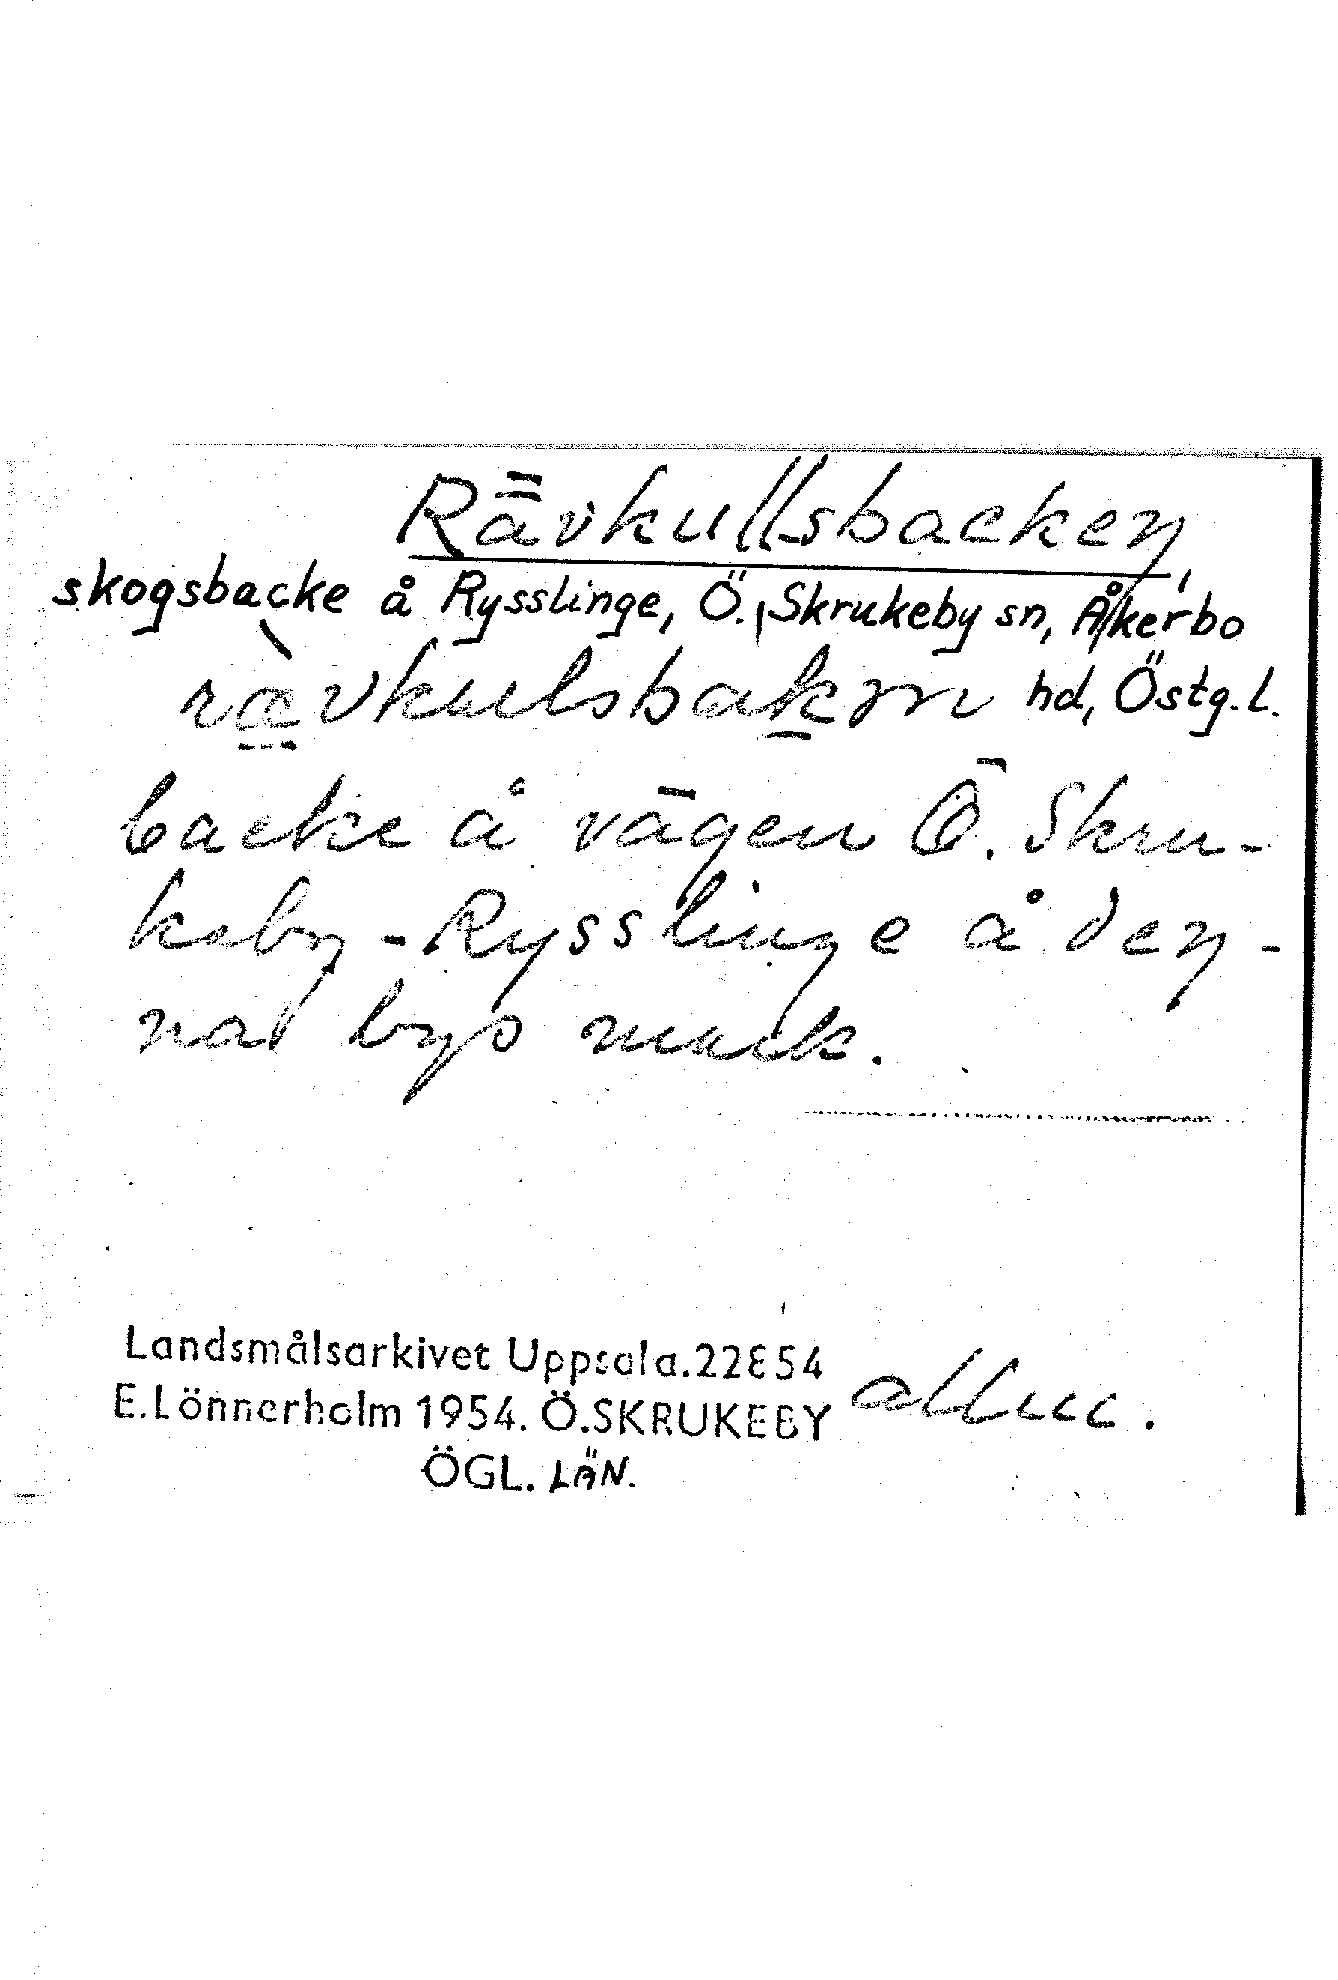 Rävkullsbacken,
skogsbacke å Rysslinge, Ö. Skrukeby sn, Åkerbo
rævkulsbakɷn hd, Östg. l.
backe å vägen Ö. Skru-
keby - Rysslinge å den-
nas bys mark.
Landsmålsarkivet Uppsala. 22854
E. Lönnerholm 1954. Ö. SKRUKEBY allm.
ÖGL. LÄN.